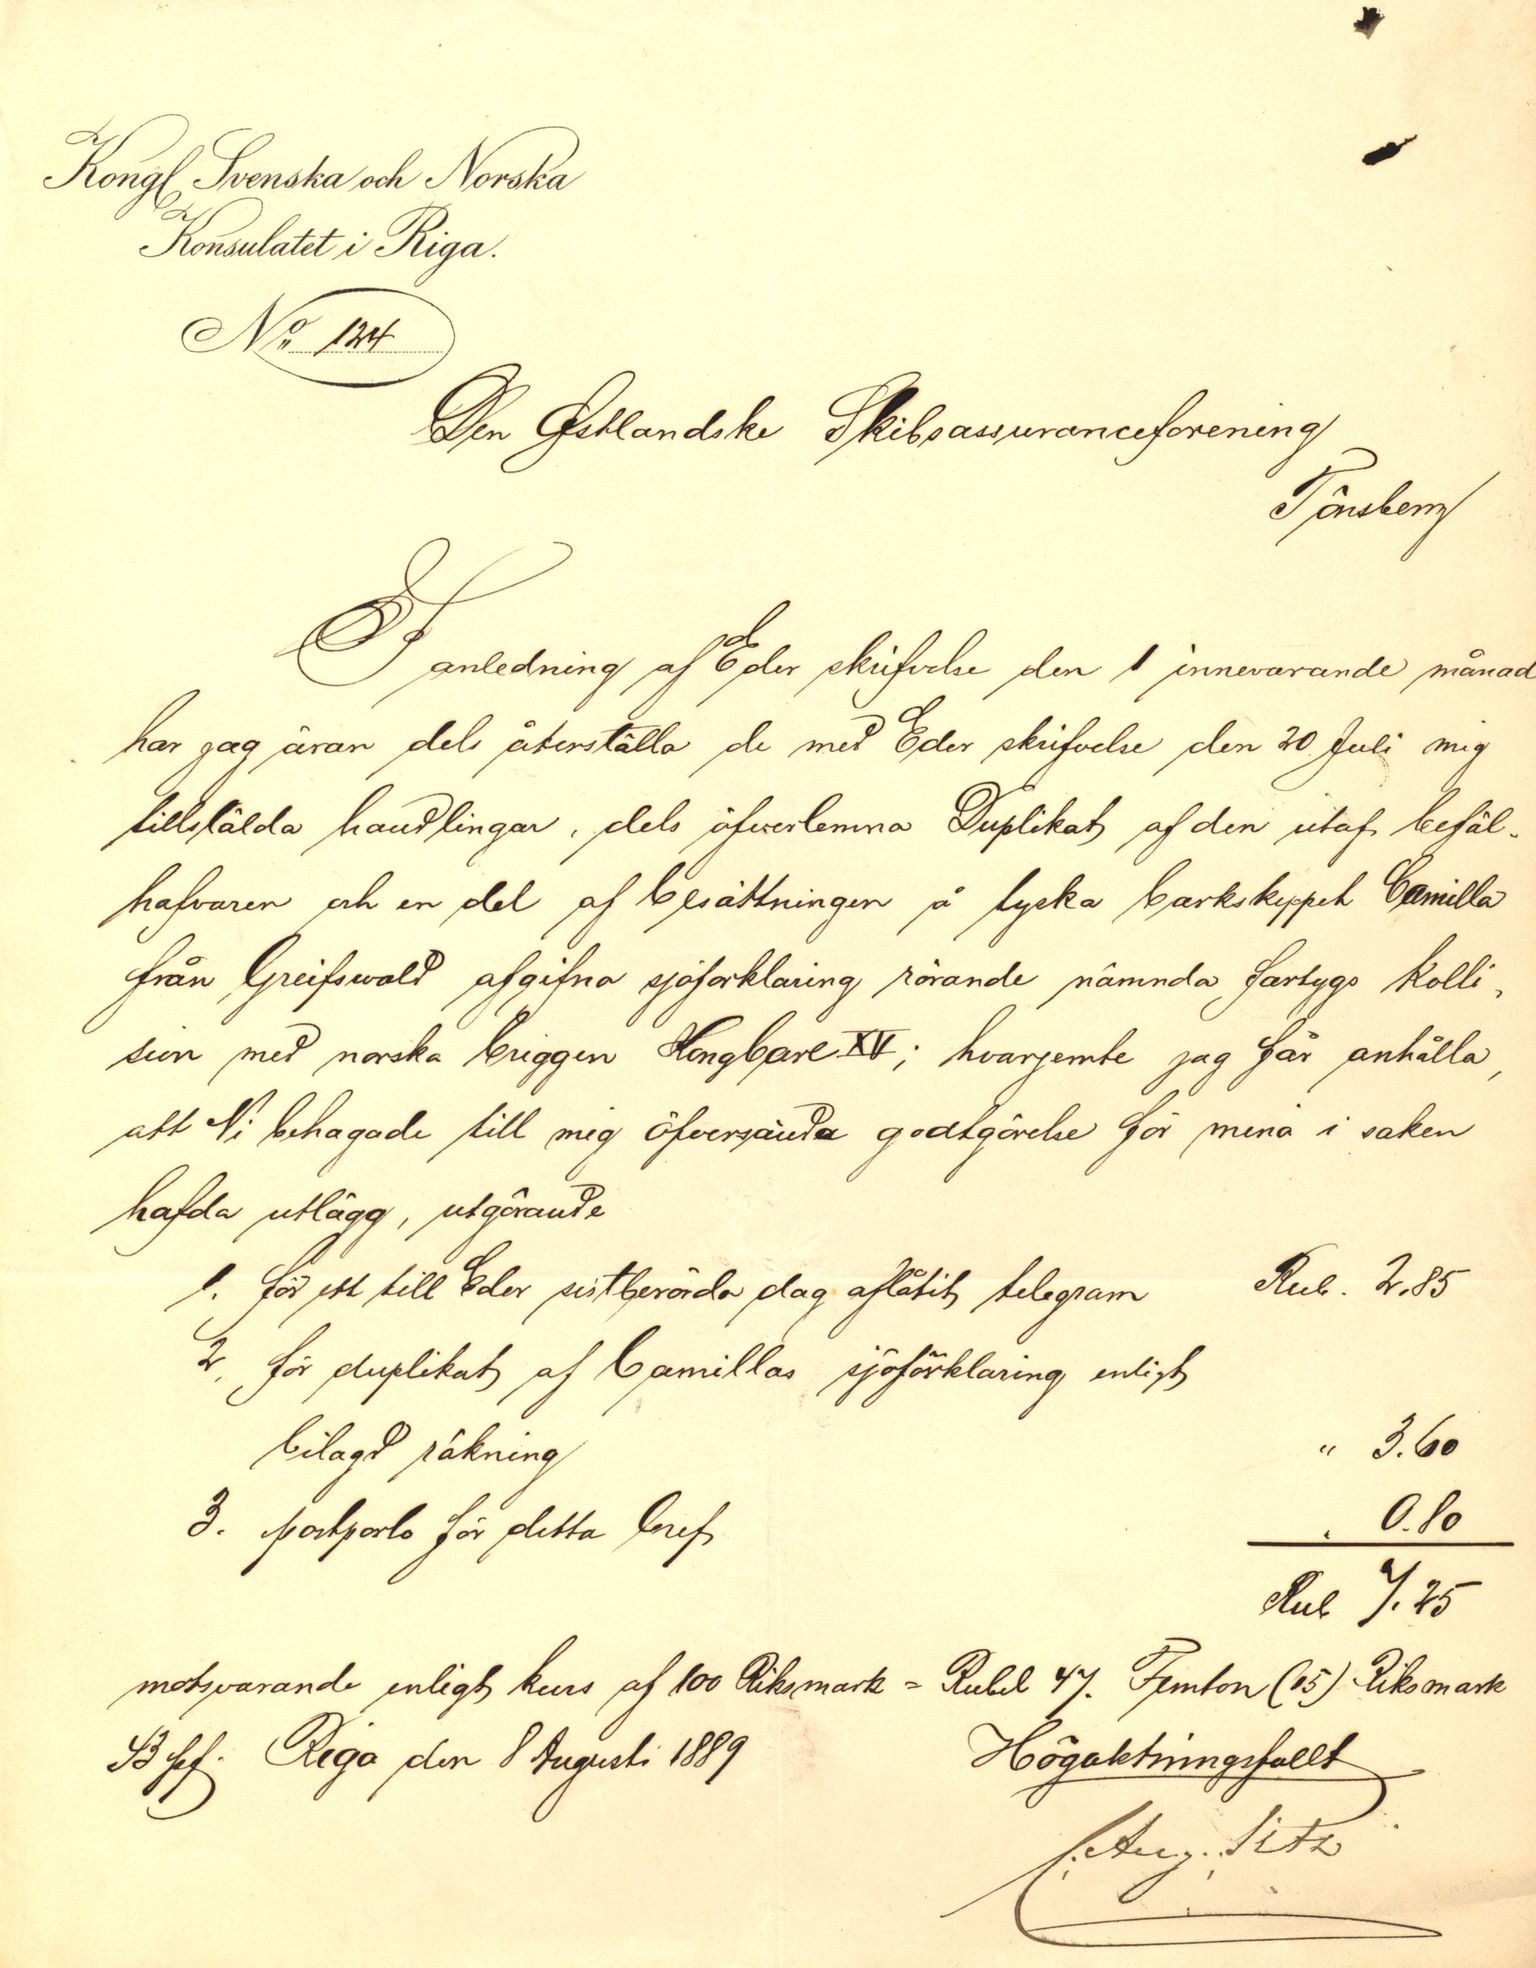 Kongl. Svenska och Norska
Konsulatet i Riga.
No 124
Den Østlandske Skibsassuranceforening
Tönsberg
I anledning af Eder skrifvelse den 1 innevarande månad
har jag äran dels återställa de med Eder skrifvelse den 20 Juli mig
tillstälda handlingar, dels öfverlemna Duplikat af den utaf befäl-
hafvaren och en del af besättningen å tyska barkskeppet Camilla
från Greifswald afgifna sjöforklaring rörande nämnda fartygs kolli-
sion med norska briggen Kong Carl XV; hvarjemte jag får anhålla,
att Ni behagade till mig öfversända godtgörelse för mina i saken
hafda utlägg, utgörande
1. för ett till Eder sistberörda dag aflåtit telegram Rub. 2.85
2. för duplikat af Camillas sjöförklaring enligt
bilagd räkning " 3.60
3. postporto för detta bref " 0.80
Rub 7.25
motsvarande enligt kurs af 100 Riksmark = Rubel 47. Femton (15) Riksmark
53 pf. Riga den 8 Augusti 1889 Högaktningsfullt
Aug.